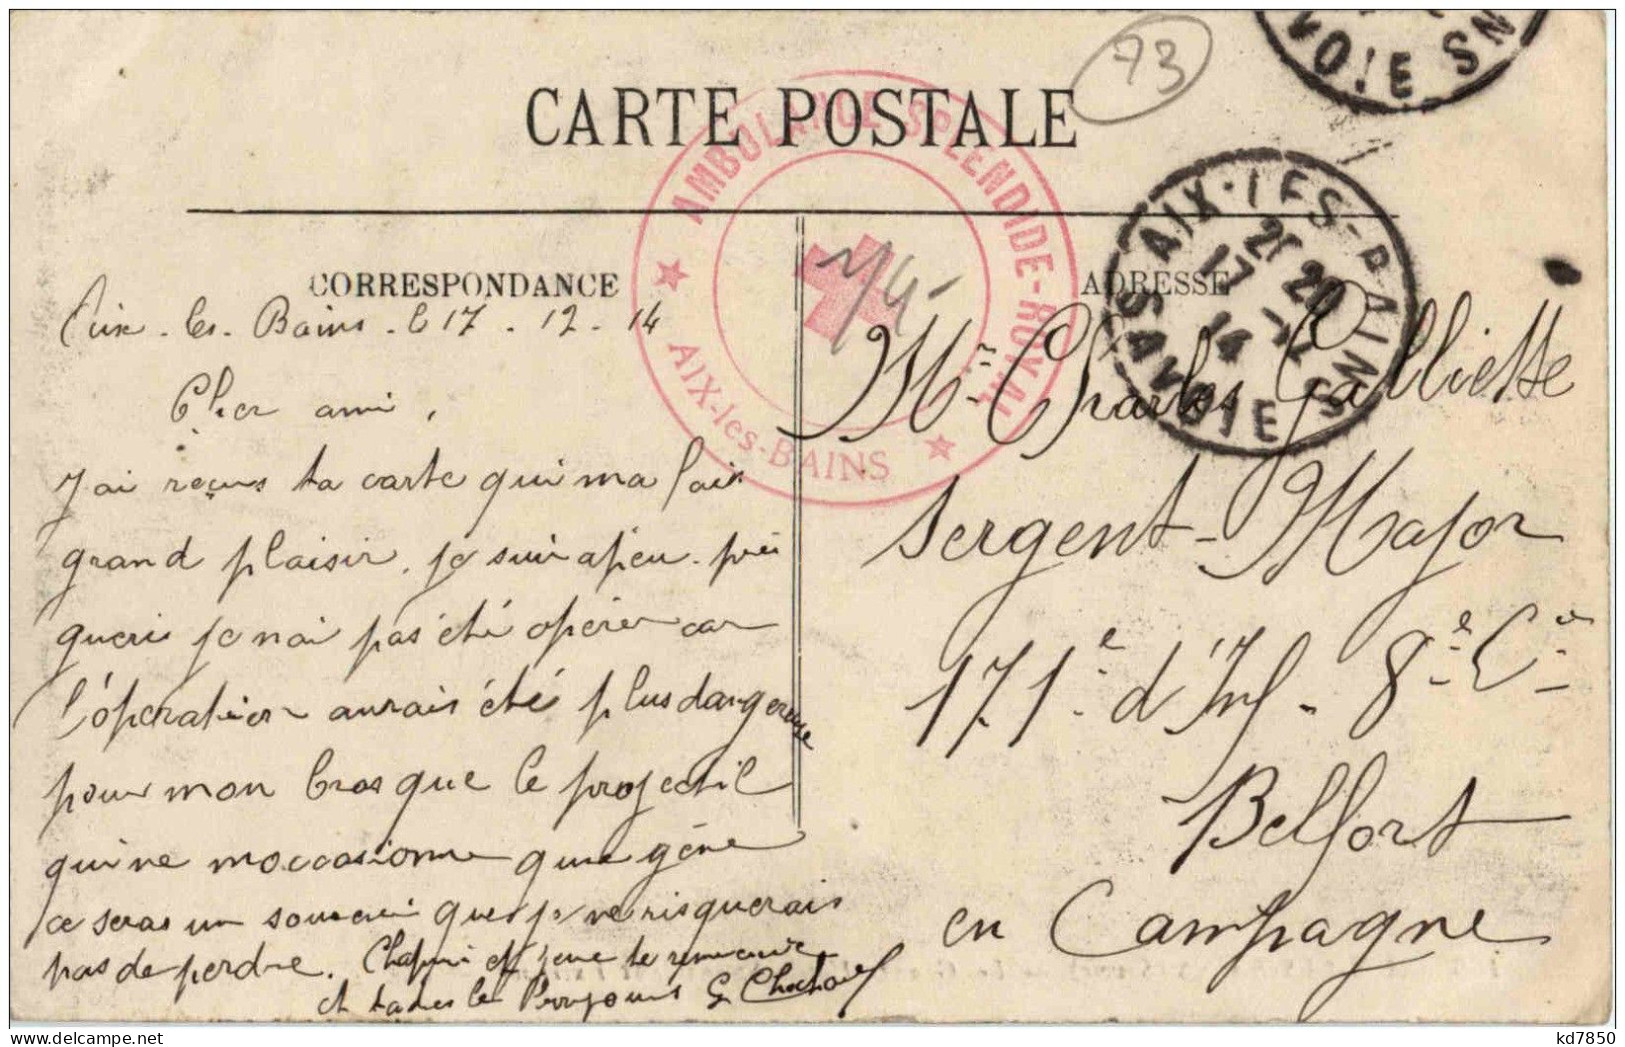 73
VOIE SN
CARTE POSTALE
AMBULANCE SPLENDIDE-ROYAL
AIX-les-BAINS
AIX-LES-BAINS
20 20
17 -12
14
SAVOIE
CORRESPONDANCE
ADRESSE
Aix-les-Bains. le 17-12-14
Cher ami,
J'ai reçus ta carte qui ma fais
grand plaisir. je suis apeu-près
gueris je nai pas été opérer car
l'óperation aurais été plus dangereuse
pour mon bras que le projectil
qui ne moccasionne qu'une gêne
ce seras un souvenir que je ne risquerais
pas de perdre.
et
Mr Charles Galliette
Sergent-Major
171e d'Inf. 8e Cie
Belfort
en Campagne
delcampe.net
kd7850